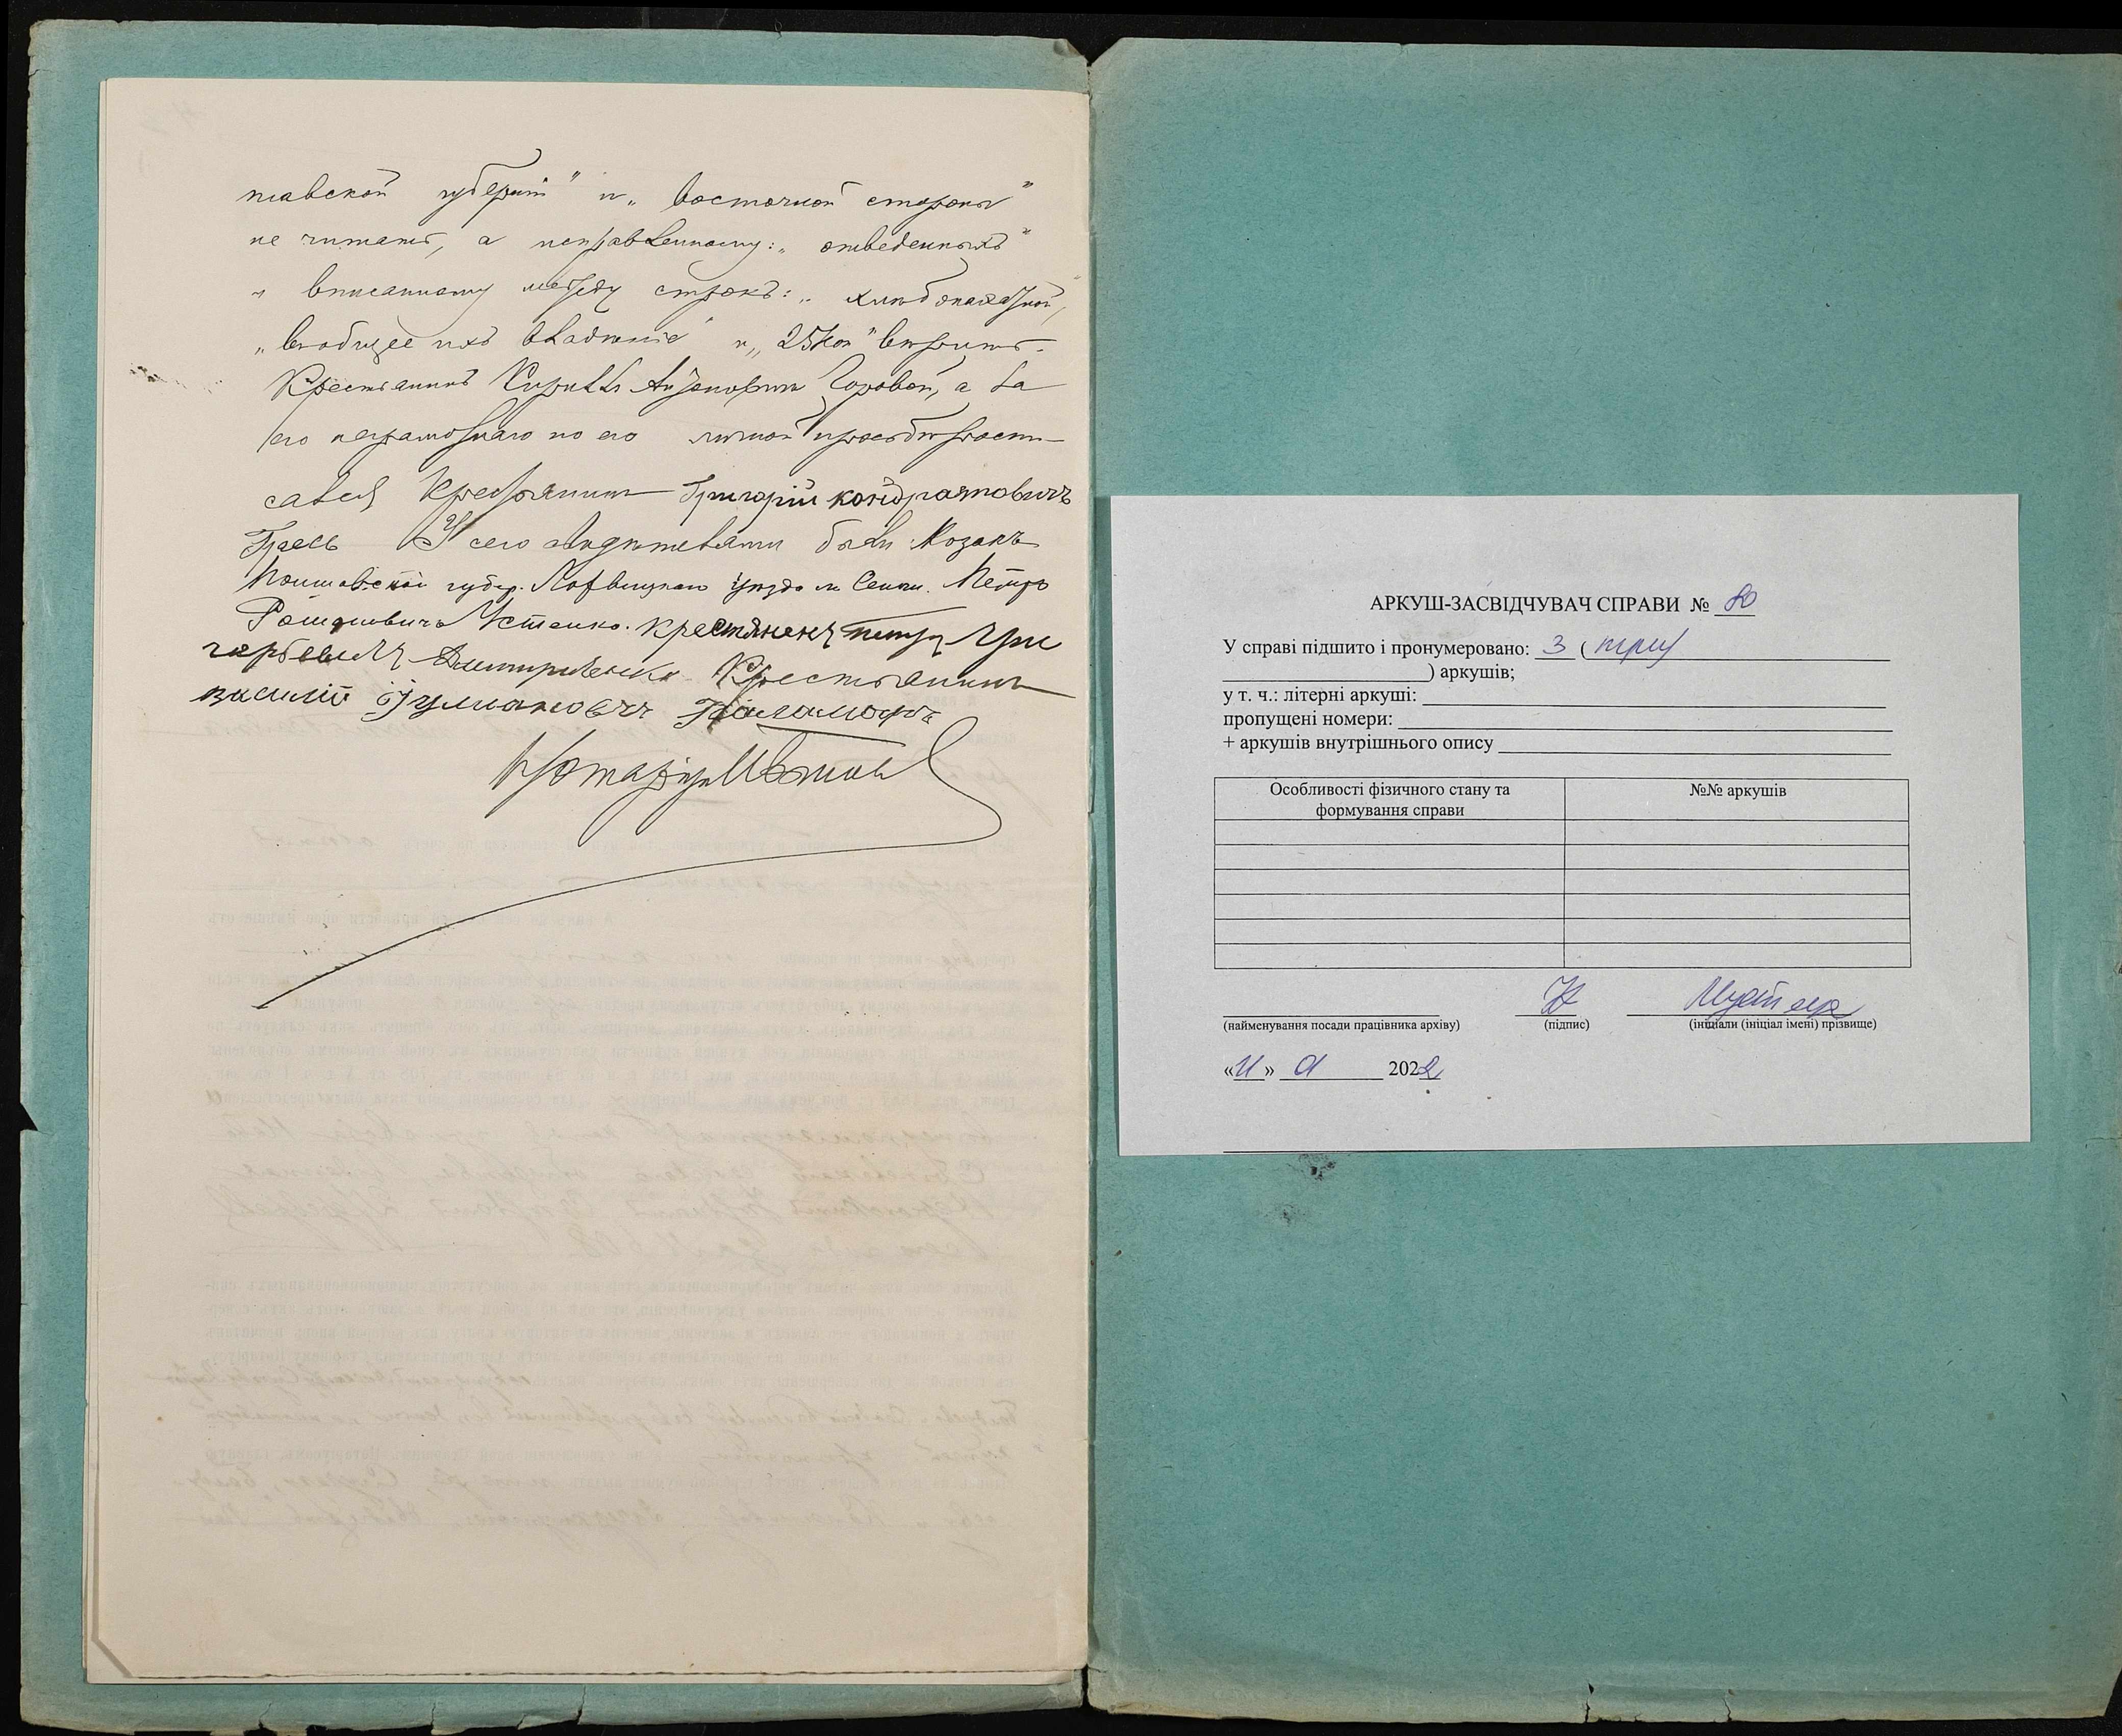 тавской губерніи" и „восточной стороны"
не читать, а исправленному: „отведенныхъ"
и вписанному между строкъ: „хлѣбопахатной,
„въ общее ихъ владѣніе" и „25 коп" вѣрить.
Крестьянинъ Кириллъ Горовой, а за
его неграмотнаго по его личной просьбѣ роспи-
сался Крестьянинъ Григорій кондратовичъ
Гаесь У сего свидѣтелями были: Козакъ
Полтавской губер. Лохвицкаго уѣзда м. Сенчи. Петръ
Романовичъ Устенко. крестянекъ петръ гри
горьевичъ Дмитриенко Крестьянинъ
василій Паламарь
Нотаріусъ
АРКУШ-ЗАСВІДЧУВАЧ СПРАВИ № 80
У справі підшито і пронумеровано: 3 ( три
) аркушів;
у т. ч.: літерні аркуші:
пропущені номери:
+ аркушів внутрішнього опису
Особливості фізичного стану та формування справи №№ аркушів
(найменування посади працівника архіву) (підпис) (ініціали (ініціал імені) прізвище)
«11» 01 2022